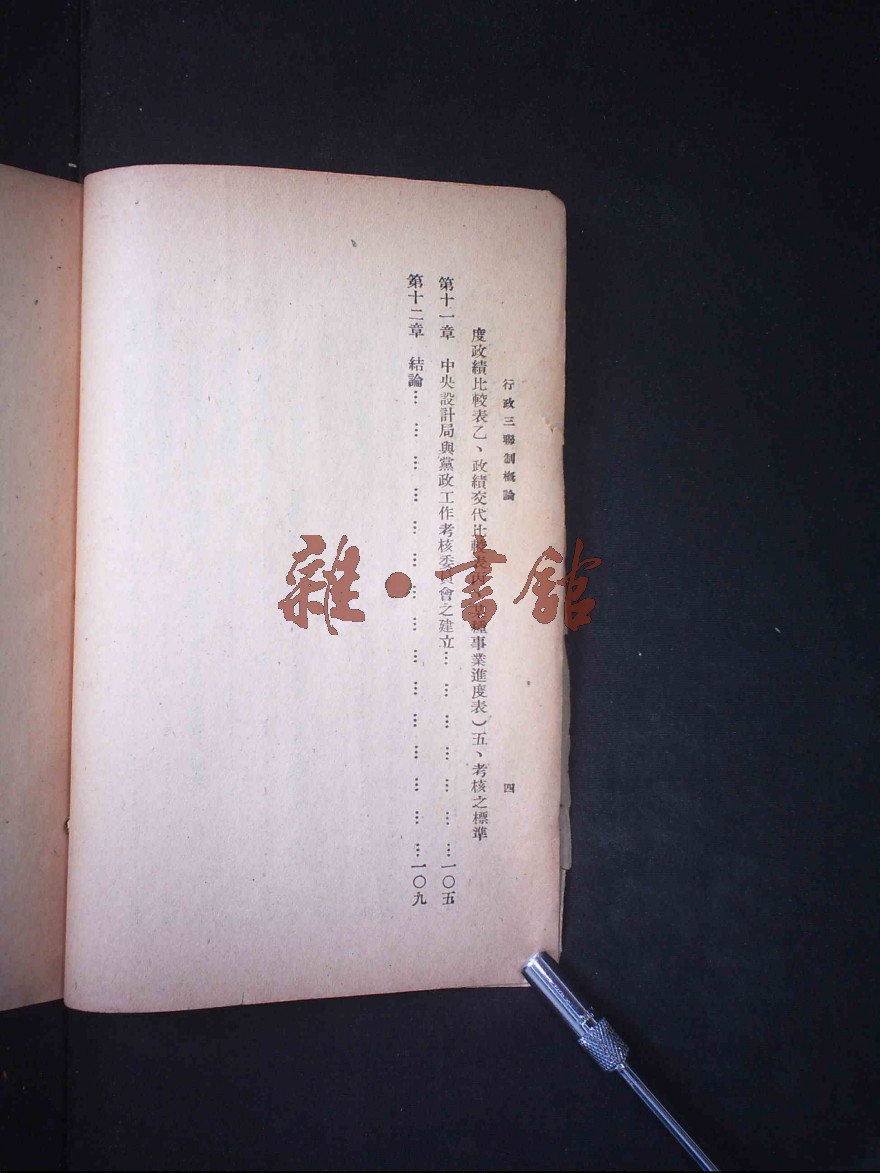 行政三聯制概論
四
度政績比較表乙、政績交代比較表丙、某種事業進度表）五、考核之標準
第十一章　中央設計局與黨政工作考核委員會之建立…………………………一〇五
第十二章　結論……………………………………………一〇九
雜・書館